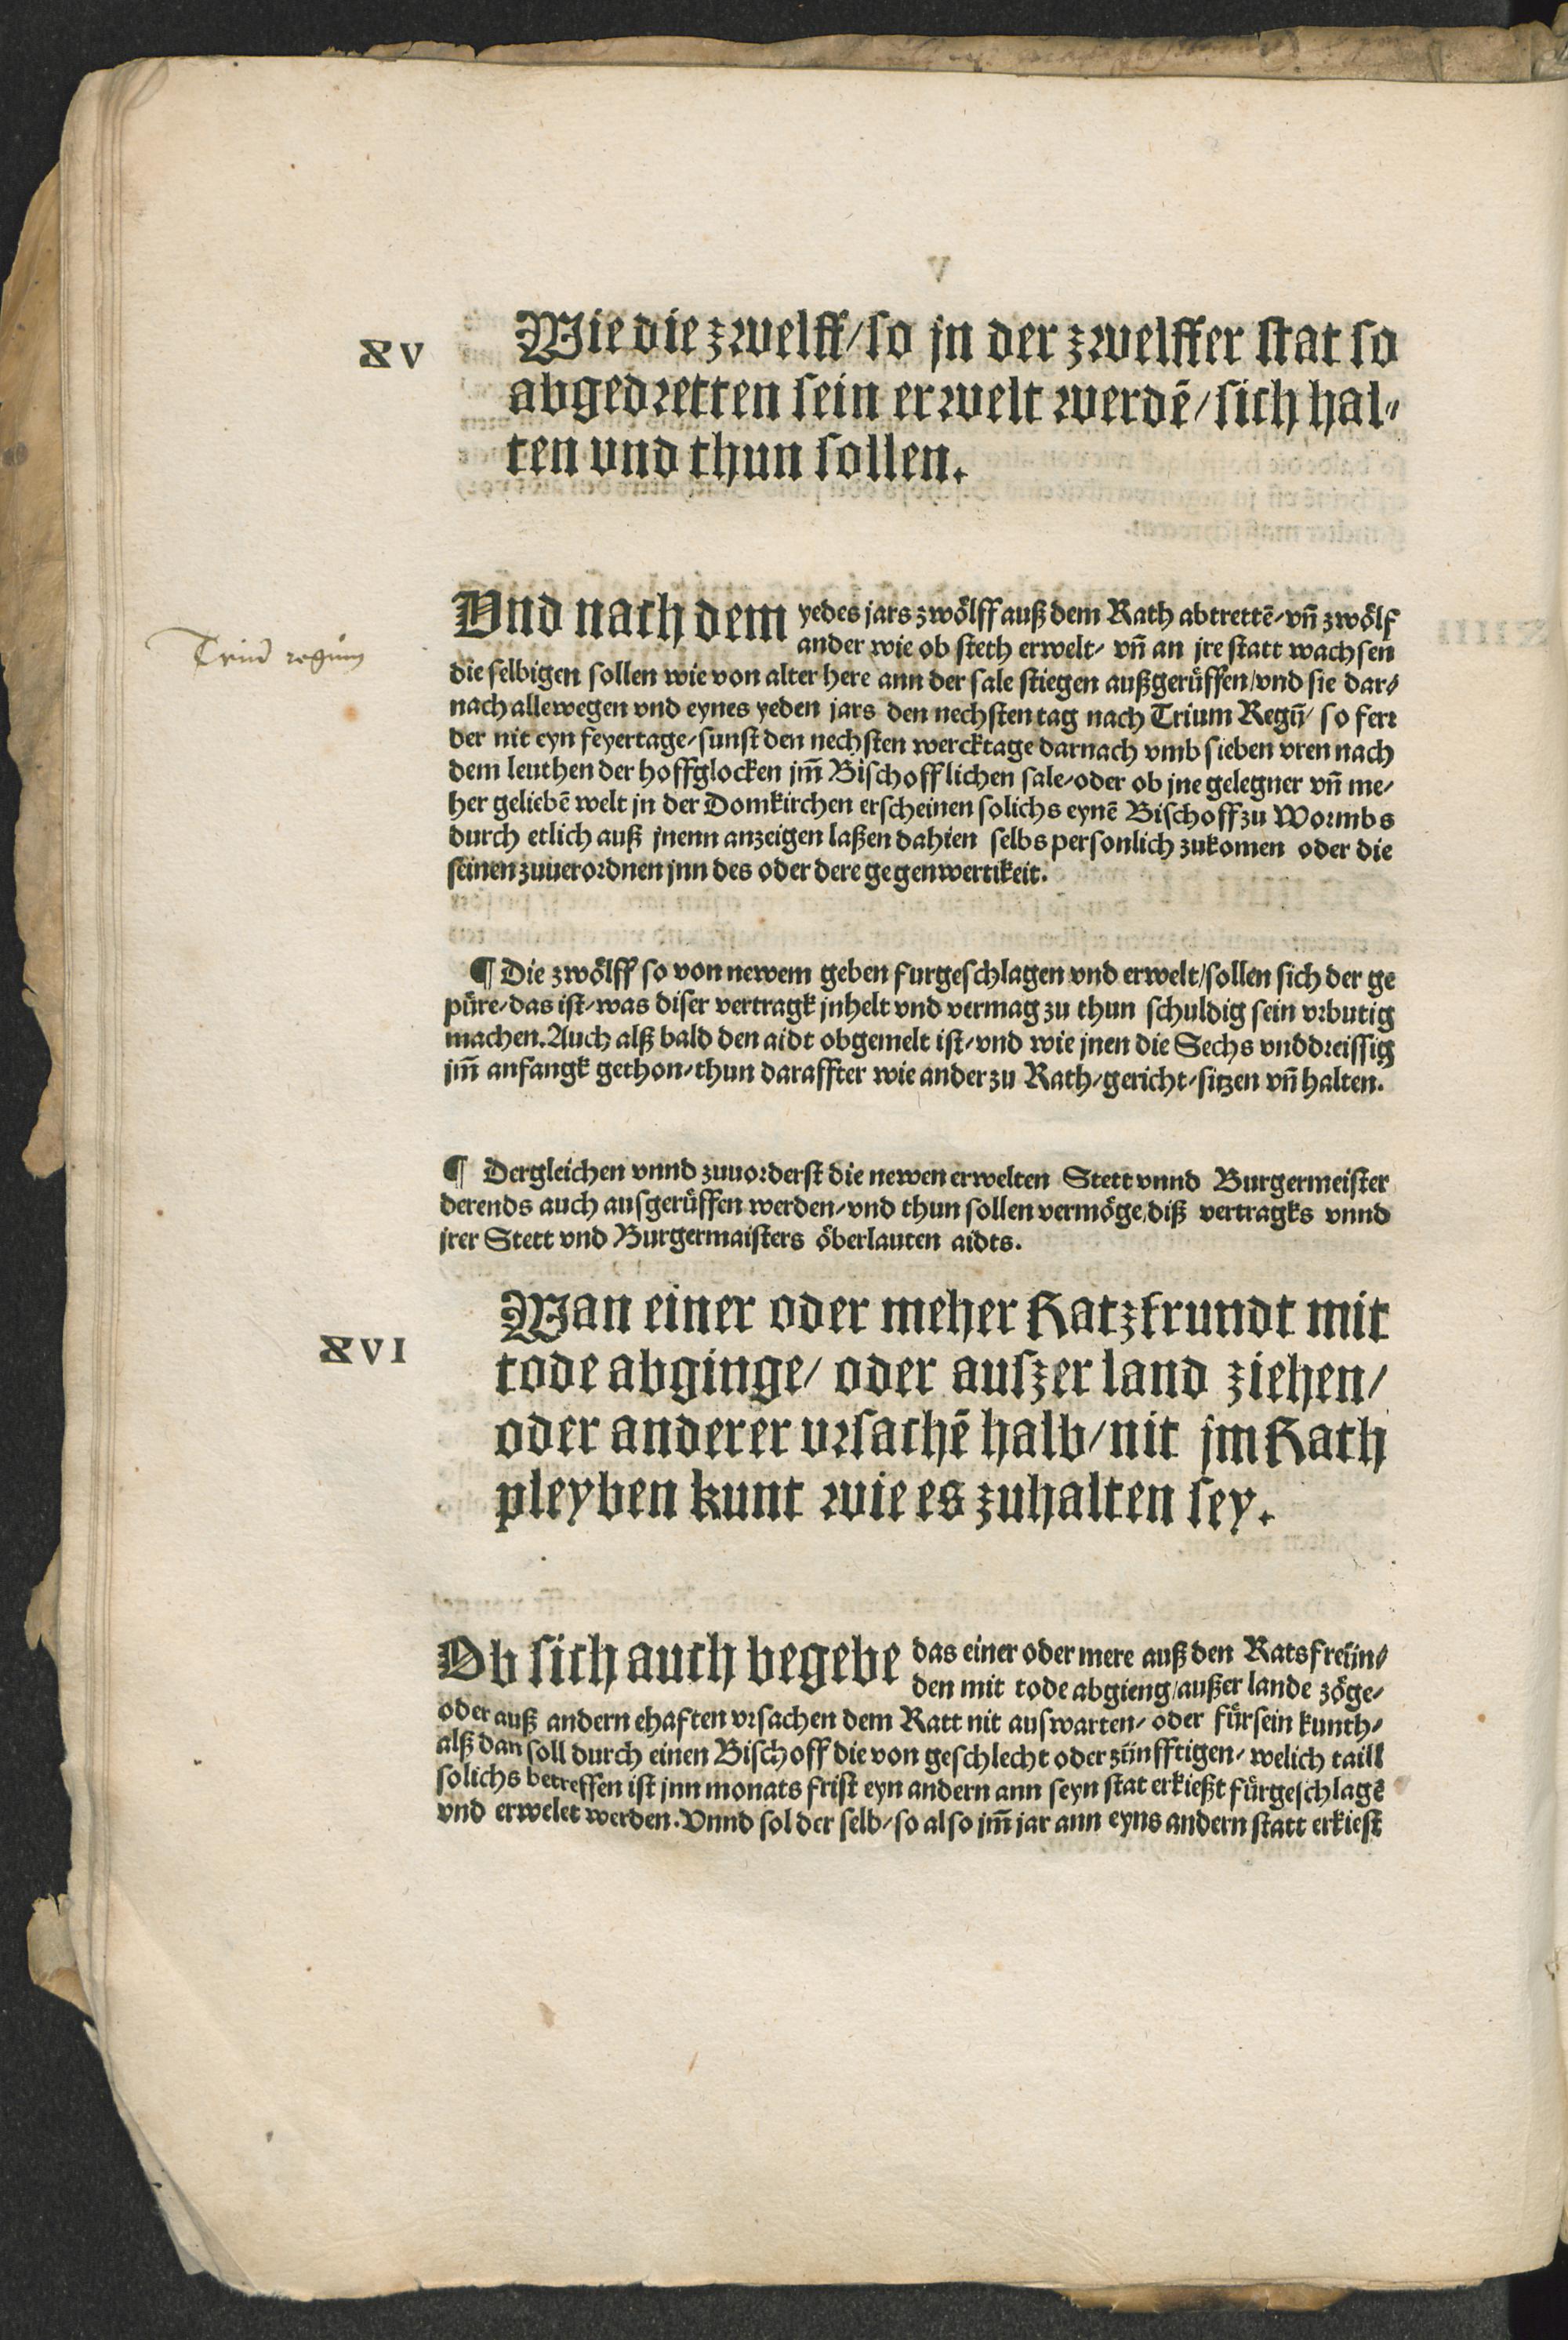 XV
Wie die zwelff/so jn der zwelffer stat so
abgedretten sein erwelt werdē/sich hal⸗
ten vnd thun sollen.
Vnd nach dem yedes jars zwölff auß dem Rath abtrettē/vn̄ zwölf
ander wie ob steth erwelt/ vn̄ an jre statt wachsen
Triū regūm
die selbigen sollen wie von alter here ann der sale stiegen außgerüffen/vnd sie dar⸗
nach allewegen vnd eynes yeden jars den nechsten tag nach Trium Regū/ so ferr
der nit eyn feyertage/sunst den nechsten wercktage darnach vmb sieben vren nach
dem leuthen der hoffglocken jm̄ Bischofflichen sale/oder ob jne gelegner vn̄ me⸗
her geliebē welt jn der Domkirchen erscheinen solichs eynē Bischoff zu Wormbs
durch etlich auß jnenn anzeigen laßen dahien selbs personlich zukomen oder die
seinen zuuerordnen jnn des oder dere gegenwertikeit.
¶ Die zwölff so von newem geben furgeschlagen vnd erwelt/sollen sich der ge
püre/das ist/was diser vertragk jnhelt vnd vermag zu thun schuldig sein vrbutig
machen. Auch alß bald den aidt obgemelt ist/vnd wie jnen die Sechs vnddreissig
jm̄ anfangk gethon/thun daraffter wie ander zu Rath/gericht/sitzen vn̄ halten.
¶ Dergleichen vnnd zuuorderst die newen erwelten Stett vnnd Burgermeister
derends auch ausgerüffen werden/vnd thun sollen vermöge diß vertragks vnnd
jrer Stett vnd Burgermaisters öberlauten aidts.
XVI
Wan einer oder meher Ratzfrundt mit
tode abginge/ oder auszer land ziehen/
oder anderer vrsachē halb/nit jm Rath
pleyben kunt wie es zuhalten sey.
Ob sich auch begebe das einer oder mere auß den Ratsfreün⸗
den mit tode abgieng/außer lande zöge/
oder auß andern ehaften vrsachen dem Ratt nit auswarten/ oder fürsein kunth/
alß dan soll durch einen Bischoff die von geschlecht oder zünfftigen/ welich taill
solichs betreffen ist jnn monats frist eyn andern ann seyn stat erkießt fürgeschlagē
vnd erwelet werden. Vnnd sol der selb/so also jm̄ jar ann eyns andern statt erkiest